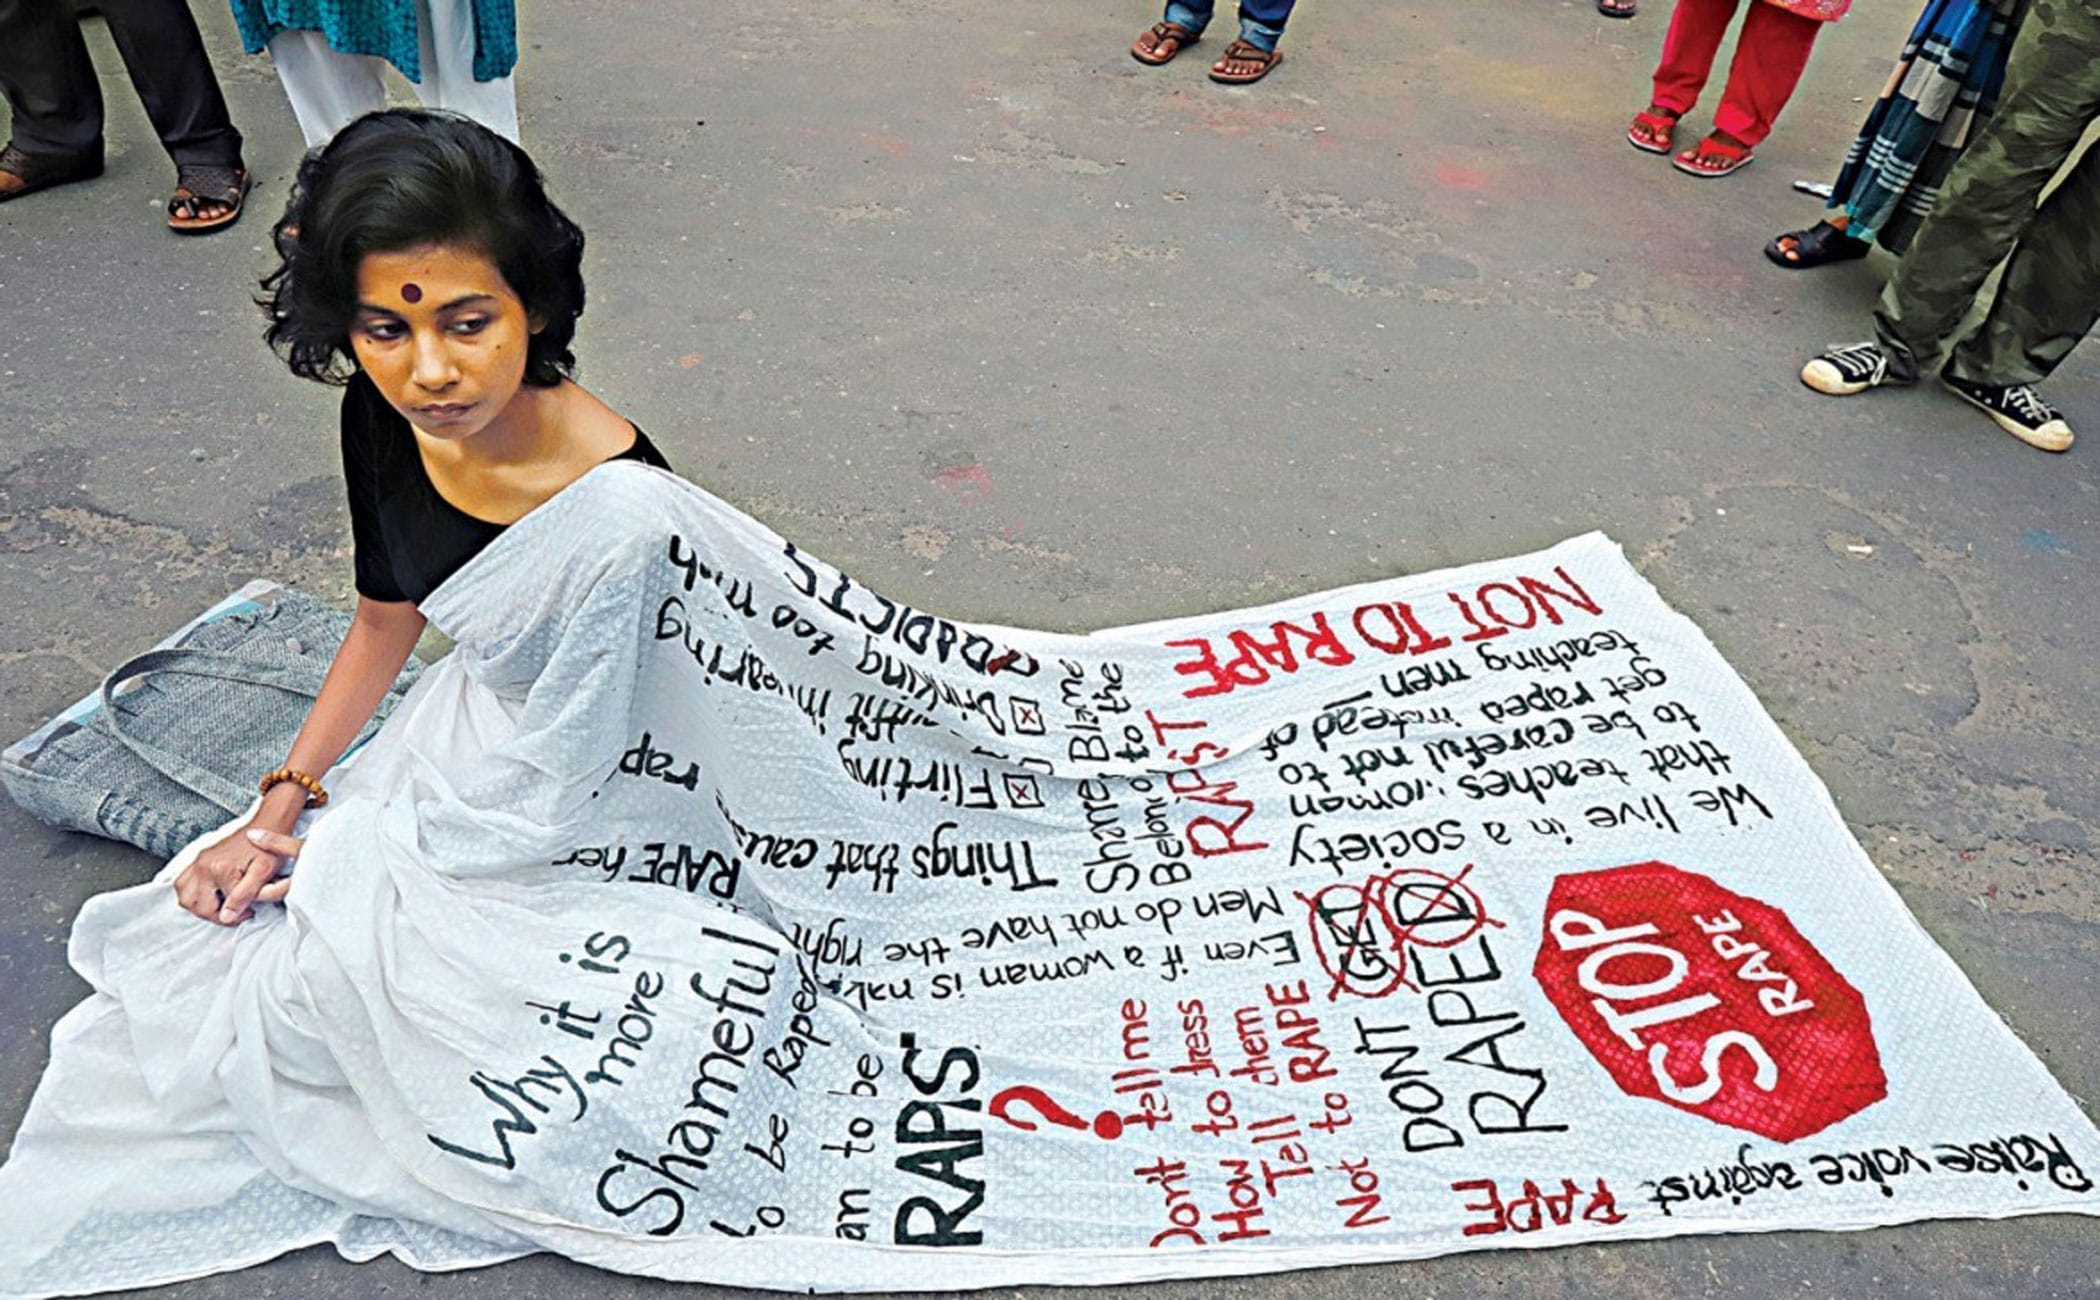 Why it is
more
Shameful
to be Raped
an to be
RAPIS
?
Don't tell me
How to dress
Tell them
Not to RAPE
DONT GET
RAPED
STOP
RAPE
Raise voice against
RAPE
We live in a society
that teaches woman
to be careful not to
get raped instead of
teaching men
NOT TO RAPE
Shame Blame
Belong to the
RAPIST
Men do not have the right
Even if a woman is
RAPE her
Things that
rap
Flirting
outfit
wearing
Drinking too much